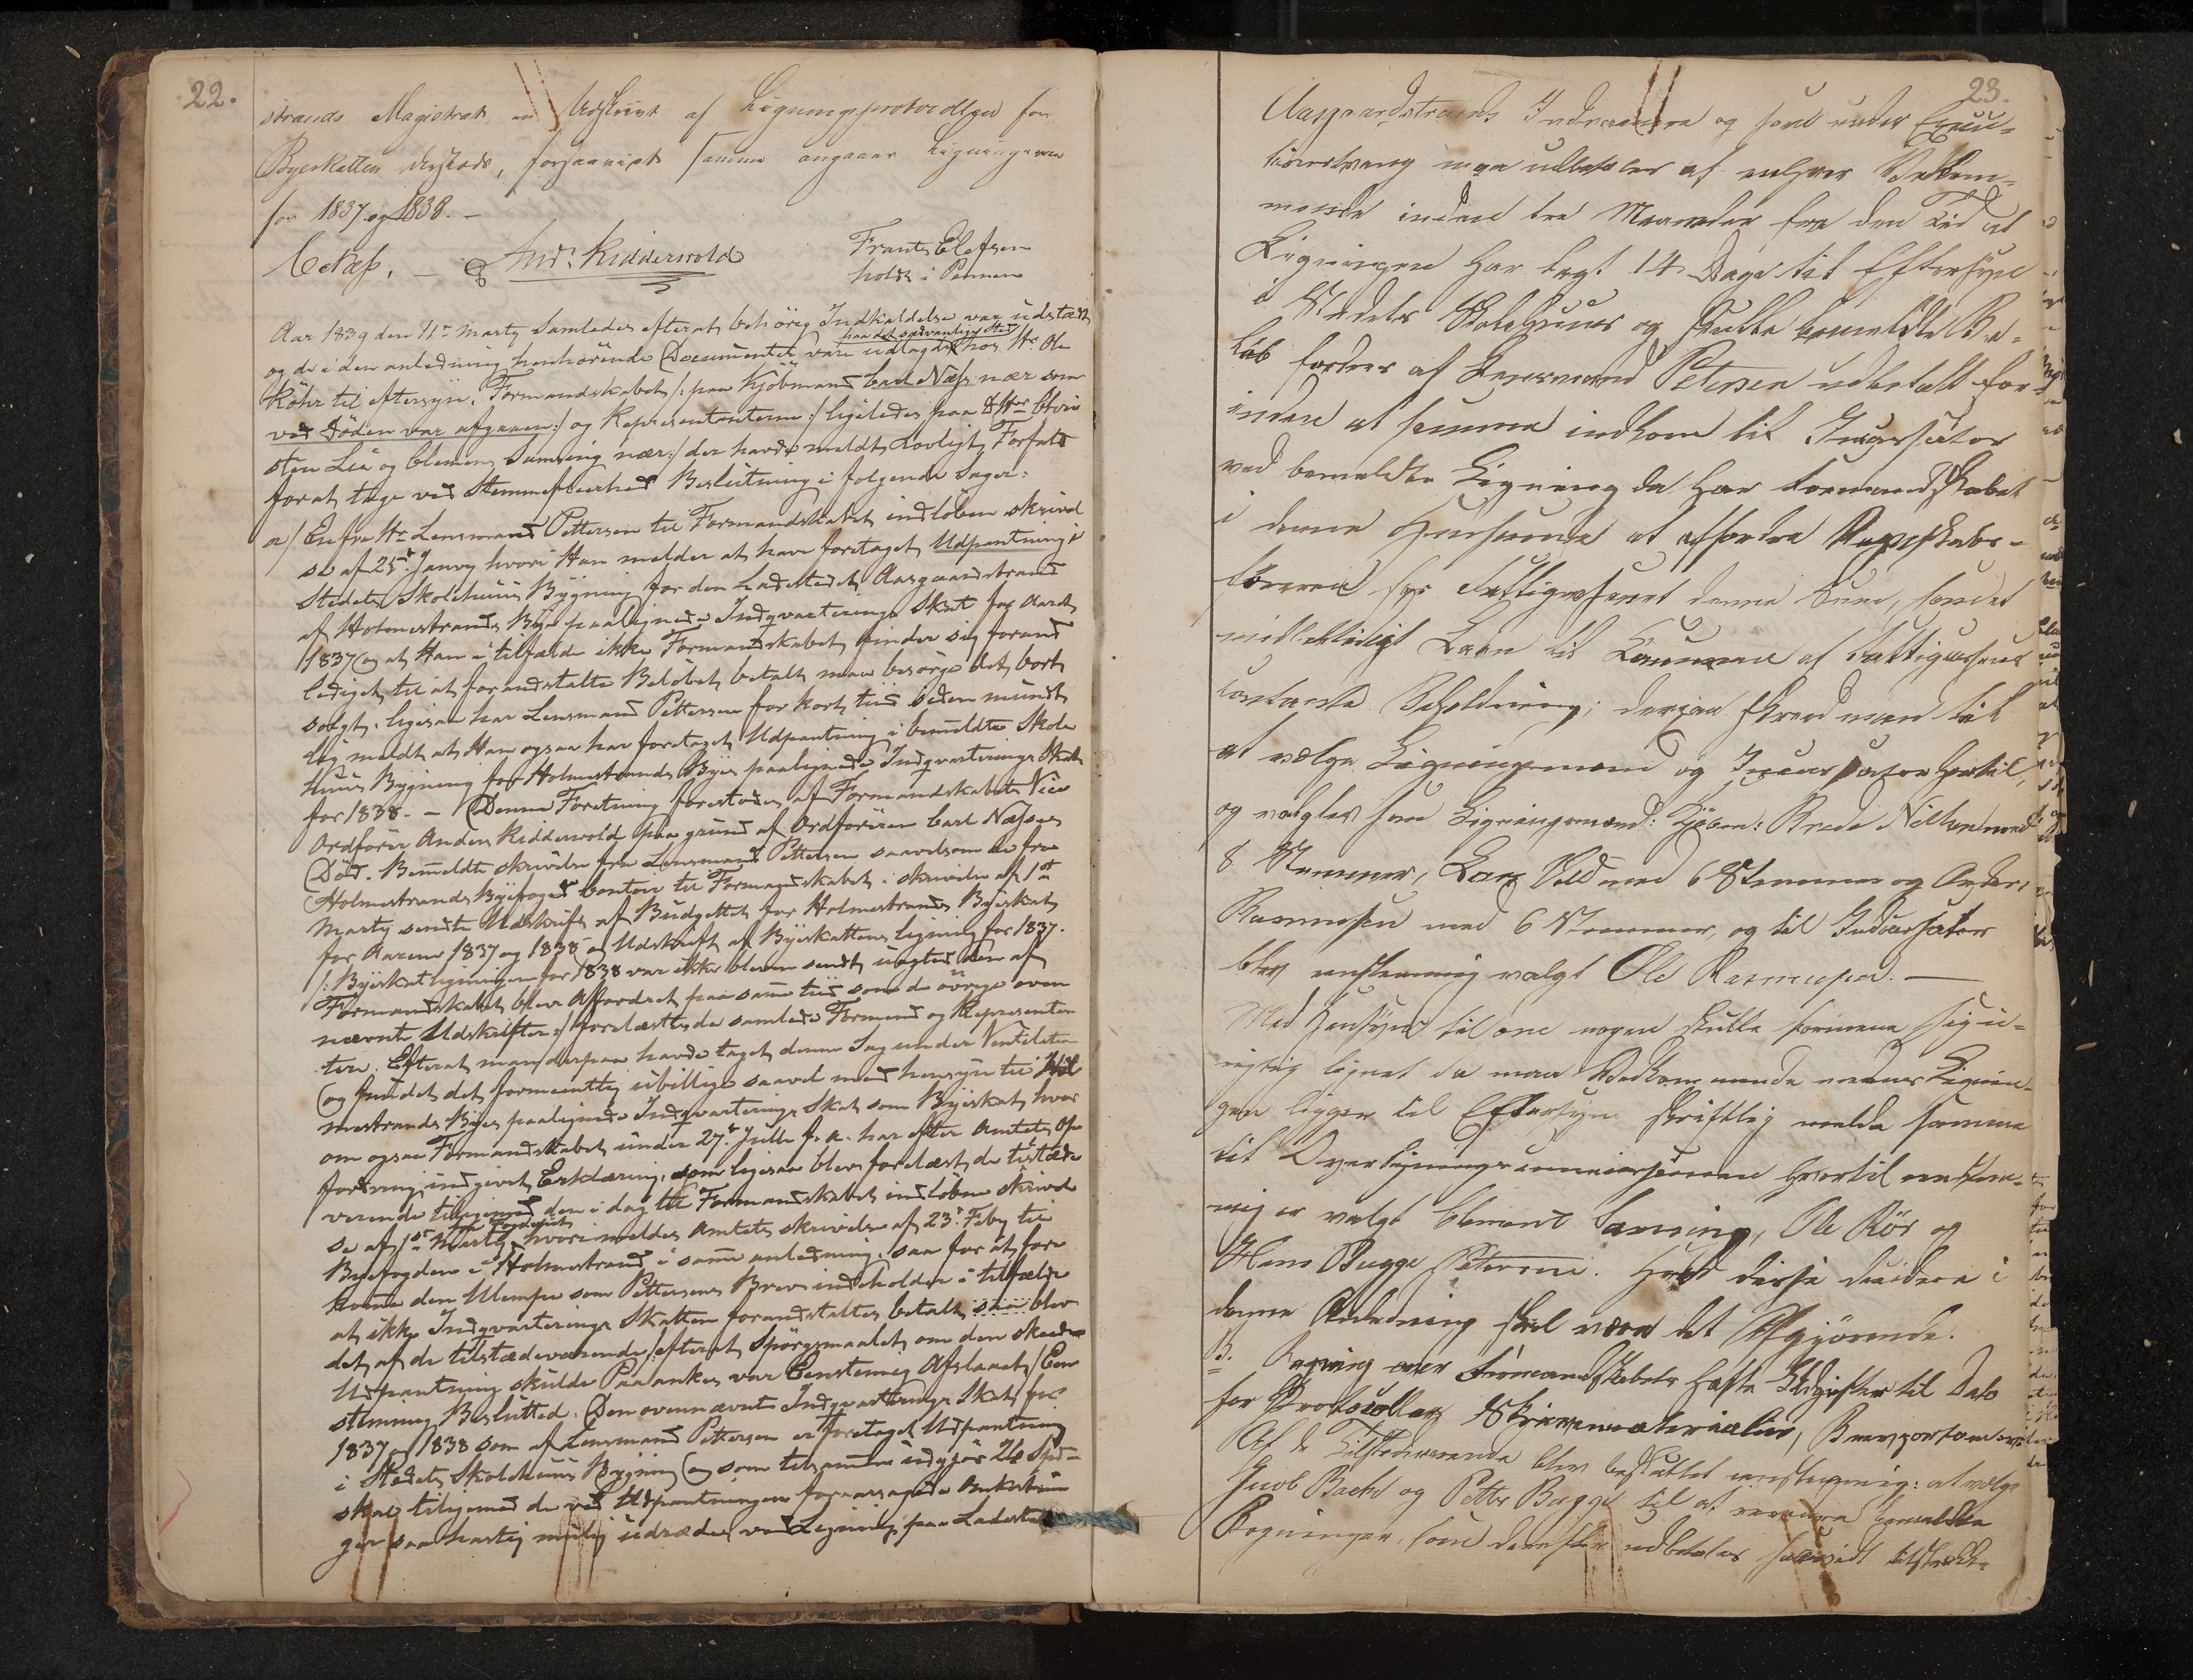 22.
strands Magistrat en Udskrivt af Ligningsprotocollen for
Byeskatten dersteds, forsaavidt samme angaaer Ligningerne
for 1837 og 1838. –
C Næss. – Ands Ridderwold Frants Elefsen
holdt i Pennen
Aar 1839 den 11te Marty samledes efterat behörig Indkaldelse var udstædt
paa det sædvanlige Sted
og de i den anledning henhörende Documenter vare udlagde hos Hr Ole
Röhr til eftersyn, Formandskabet /: paa Kjöbmand Carl Næss nær som
ved Döden var afgaaen :/ og Repræsentanterne :/ ligeledes paa D Hrr Chri
sten Lie og Clemens Samsing nær :/ der havde meldt Lovligt Forfald
for at tage ved Stemmefleerhed Beslutning i følgende Sager:
a/ En fra Hr Lensmand Pettersen til Formandskabet indlöben skrivel
se af 25de Janry hvori Han melder at have foretaget Udpantning i
Stedets Skolehuus Bygning for den Ladestedet Aasgaardstrand
af Holmestrands Bye paalignede Indqvarterings Skat for Aaret
1837 og at Han i tilfælde ikke Formandskabet finder sig foran
lediget til at forandstalte Belöbet betalt maa besörge det bort
solgt. ligesaa har Lensmand Pettersen for kort tiid siden mundt
lig meldt at Han ogsaa har foretaget Udpantning i bemeldte Skole
Huus Bygning for Holmestrands Byes paalignede Indqvarterings Skat
for 1838. – Denne Foretning forestodes af Formandskabets Vice
Ordförer Anders Ridderwold paa grund af Ordföreren Carl Næsses
Död. Bemeldte skrivelse fra Lensmand Pettersen saavelsom de fra
Holmestrands Byefoged Contoir til Formandskabet i skrivelse af 1ste
Marty sendte Udskrift af Budgettet for Holmestrands Byeskat
for Aarene 1837 og 1838 og Udskrift af Byeskattens ligning for 1837.
/: Byeskatligningen for 1838 var ikke bleven sendt uagtet den af
Formandskabet blev Affordret paa samme tiid som de övrige oven
nævnte Udskrifter :/ forelæstes de samlede Formænd og Repræsentan
tere. Efterat man derpaa havde taget denne Sag under Ventilation
og fundet det formeentlig ubillige saavel med hensyn til Hol
mestrands Byes paalignede Indqvarterings Skat som Byeskat, hvor
om ogsaa Formandskabet under 27de Julli f. a. har efter Amtets Op
fordring indgivet Erklæring, som ligesaa blev forelæst de tilstæde
værende tilligemed den i dag til Formandskabet indlöbne skrivel
fra Fogderiet
se af 1ste Marty hvori meldes Amtets skrivelse af 23de Feby til
Byefogden i Holmestrand i samme anledning. saa for at fore
komme den Ulempe som Pettersens Brev indeholder i tilfælde
at ikke Indqvarterings Skatten forandstaltes betalt saa blev
det af de tilstædeværende /efterat Spörgsmaalet om den skeede
Udpantning skulde Paaankes var Eenstemig Afslaaet/ Een
stemmig Besluttet. Den ovennævnte Indqvarterings Skat for
1837 og 1838 som af Lensmand Pettersen er foretaget Udpantning
i Stedets Skolehuus Bygning og som tilsammen udgjör 26 Spd
skal tilligemed de ved Udpantningen foraarsagede Omkostnin
ger saa hastig mulig udredes ved Ligning paa Ladeste
23.
Aasgaardstrands Indvaanere og som under Execu-
tionstvang maa udbetales af enhver Vedkom-
mende inden tre Maaneder fra den Tid at
Ligningen har lagt 14 Dage til Eftersyn
i Stedets Skolehuus og skulle bemeldte Be-
löb fordres af Lensmand Petersen udbetalt for
inden at samme indkom til Incassator
ved bemeldte Ligning da har Formandskabet
i denne Henseende at affordre Regnskabs-
föreren for Fattigvæsenet denne Sum, som et
midlertidigt Laan til Communen af Fattigvæsenets
contante Beholdning; derpaa skred man til
at vælge Ligningsmænd og Incassator hertil,
og valgtes som Ligningsmænd: Kjöbm: Brede Nilsen med
8 Stemmer, Lars Vold med 6 Stemmer og Anders
Rasmussen med 6 Stemmer, og til Incassator
blev eenstemmig valgt Ole Rasmussen. –
Med Hensyn til om nogen skulle formene sig u-
rigtig lignet da maa Vedkommende medens Lignin-
gen ligger til Eftersyn skriftlig melde samme
til Overligningscommissionen hvortil eenstem-
mig er valgt Clemens Samsing, Ole Rör og
Hans Bugge Petersen. Hvad disse decidere i
denne Anledning skal være det Afgjörende.
B. Regning over Formandskabets hafte Udgifter til Dato
for Protocoller, Skrivematerialier, Brevporto
Af de Tilstedeværende blev besluttet eenstemmig: at vælge
Jacob Bache og Petter Bugge til at revidere bemeldte
Regninger, som derefter udbetales saavidt tilstrække-